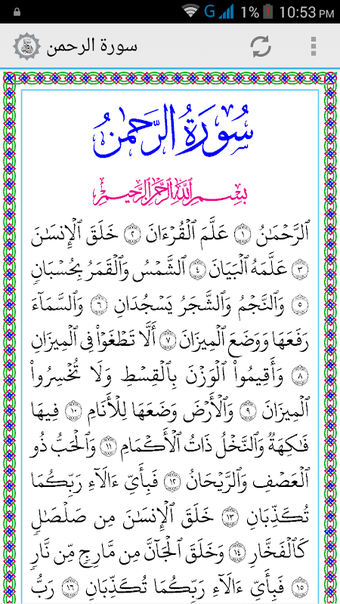 G 1% 10:53 PM
سورة الرحمن
سُورَةُ الرَّحْمَٰنُ
بِسْمِ اللَّهِ الرَّحْمَٰنِ الرَّحِيمِ
الرَّحْمَٰنُ ١ عَلَّمَ الْقُرْءَانَ ٢ خَلَقَ الْإِنسَٰنَ
٣ عَلَّمَهُ الْبَيَانَ ٤ الشَّمْسُ وَالْقَمَرُ بِحُسْبَانٍ
٥ وَالنَّجْمُ وَالشَّجَرُ يَسْجُدَانِ ٦ وَالسَّمَآءَ
رَفَعَهَا وَوَضَعَ الْمِيزَانَ ٧ أَلَّا تَطْغَوْا۟ فِى الْمِيزَانِ
٨ وَأَقِيمُوا۟ الْوَزْنَ بِالْقِسْطِ وَلَا تُخْسِرُوا۟
الْمِيزَانَ ٩ وَالْأَرْضَ وَضَعَهَا لِلْأَنَامِ ١٠ فِيهَا
فَٰكِهَةٌ وَالنَّخْلُ ذَاتُ الْأَكْمَامِ ١١ وَالْحَبُّ ذُو
الْعَصْفِ وَالرَّيْحَانُ ١٢ فَبِأَىِّ ءَالَآءِ رَبِّكُمَا
تُكَذِّبَانِ ١٣ خَلَقَ الْإِنسَٰنَ مِن صَلْصَٰلٍ
كَالْفَخَّارِ ١٤ وَخَلَقَ الْجَآنَّ مِن مَّارِجٍ مِّن نَّارٍ
١٥ فَبِأَىِّ ءَالَآءِ رَبِّكُمَا تُكَذِّبَانِ ١٦ رَبُّ